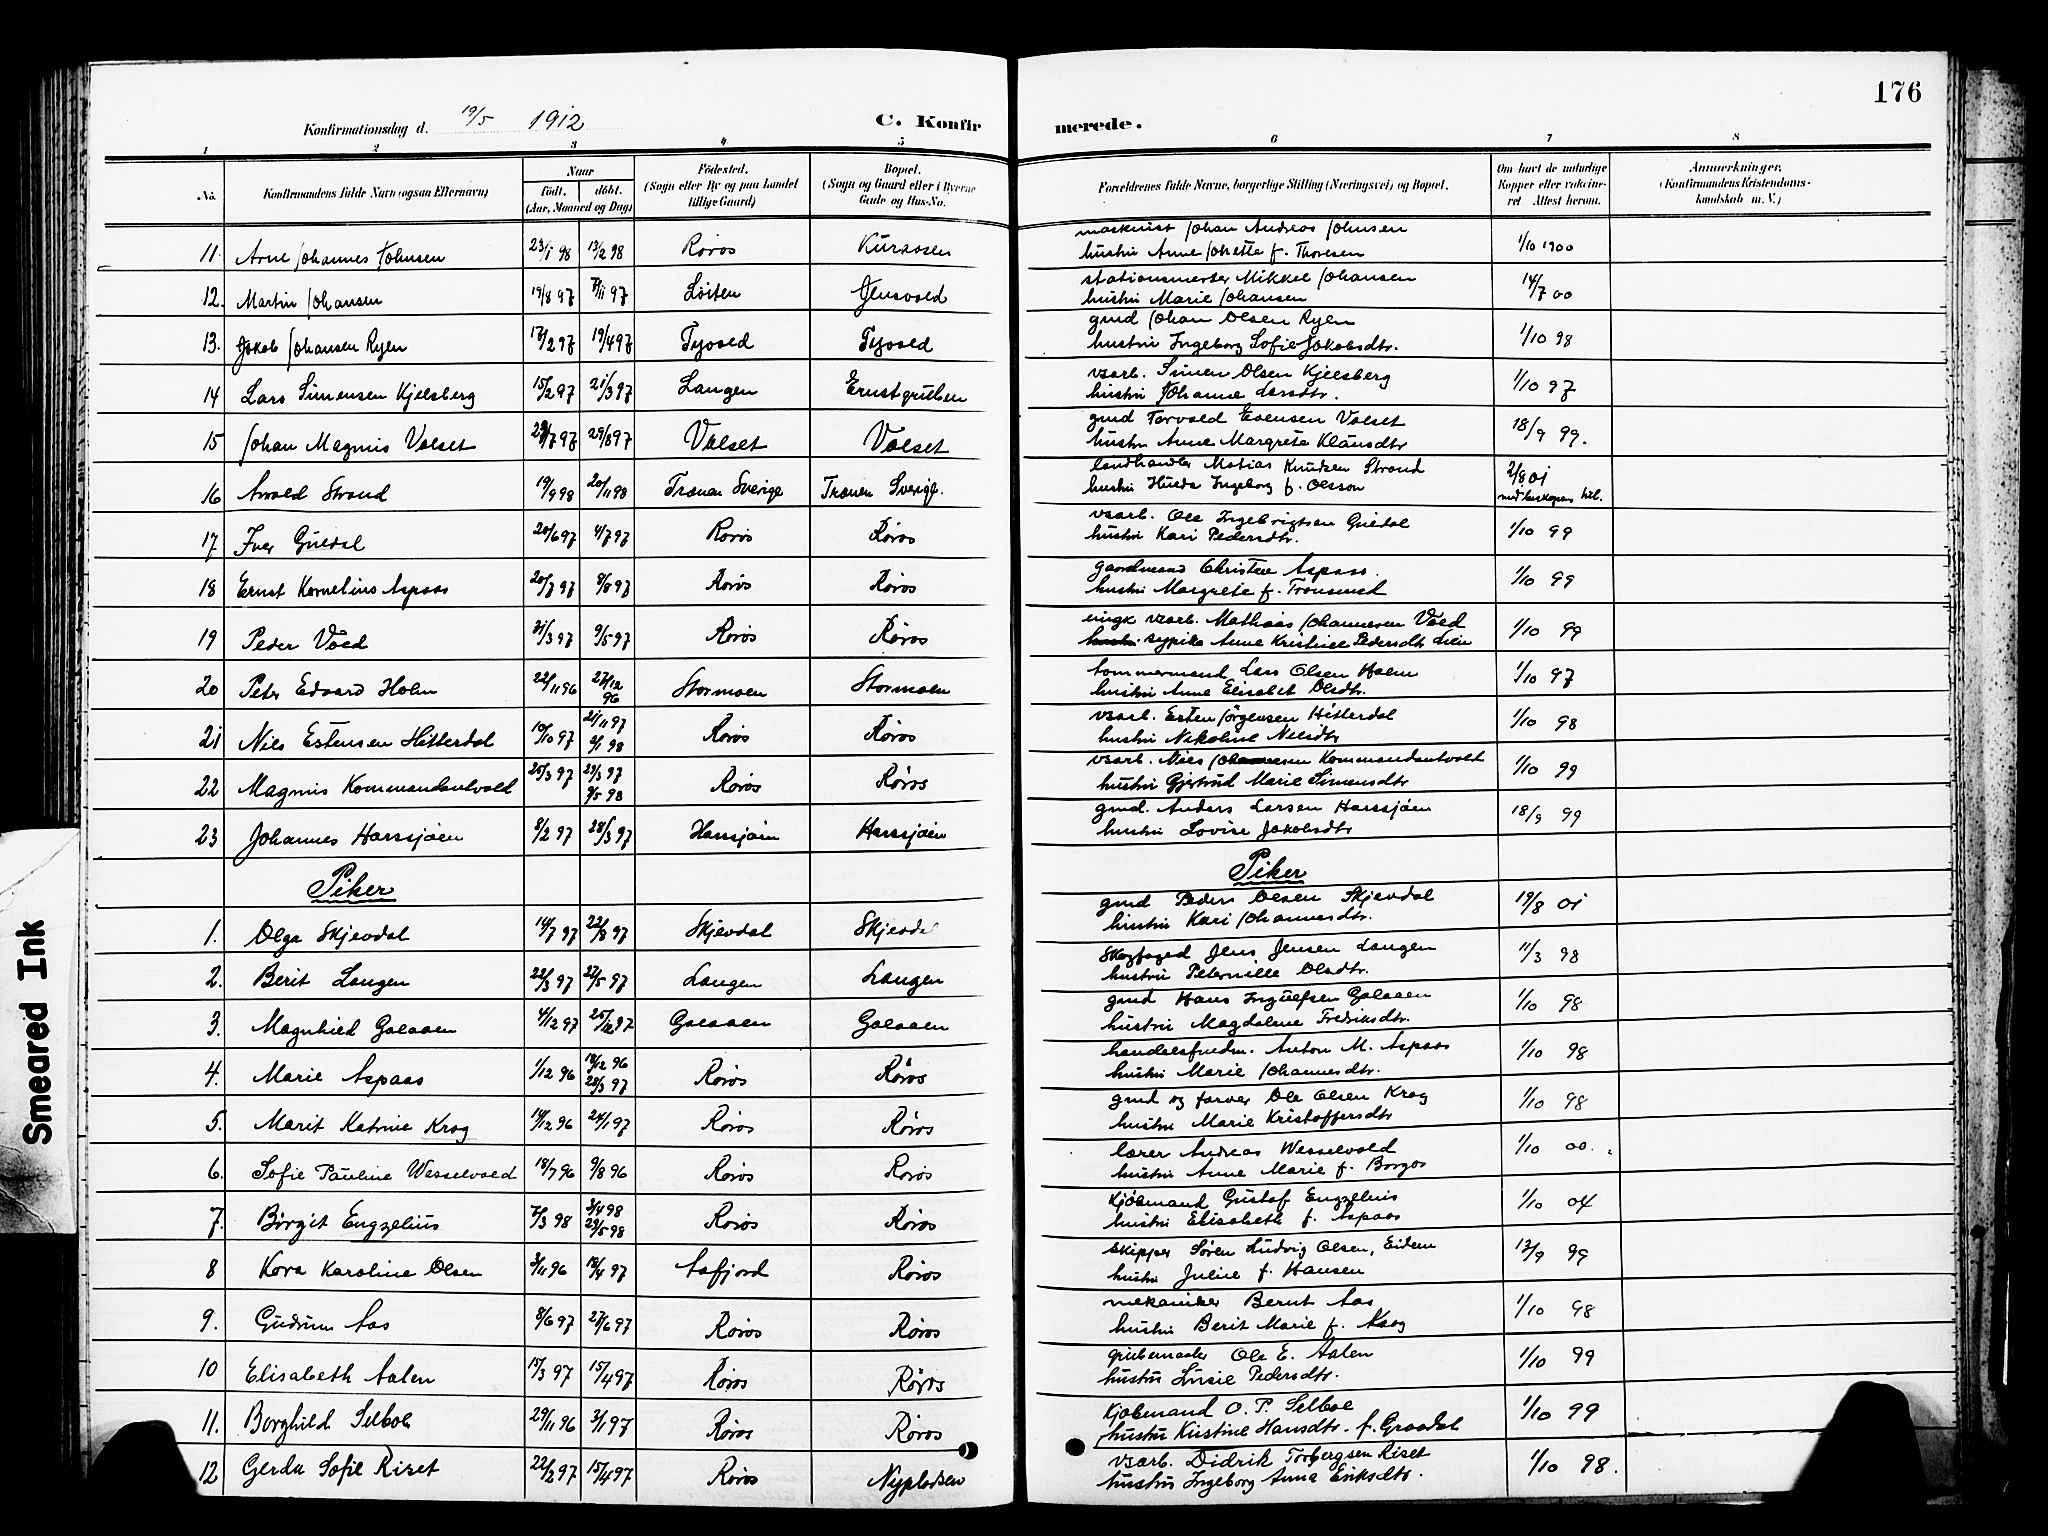 176
Konfirmationsdag d. 19/5 1912 C. Konfirmerede.
1 2 3 4 5 6 7 8
No. Konfirmandens fulde Navn (ogsaa Efternavn) Naar født, døbt. (Aar, Maaned og Dag) Fødested. (Sogn eller By og paa Landet tillige Gaard) Bopæl. (Sogn og Gaard eller i Byerne Gade og Hus-No. Forældrenes fulde Navne, borgerlige Stilling (Næringsvei) og Bopæl. Om havt de naturlige Kopper eller vakcineret Attest herom. Anmærkninger. (Konfirmandens Kristendomskundskab m. V.)
11. Arne Johannes Johnsen 23/1 98 13/2 98 Røros Kuraasen maskinist Johan Andreas Johnsen 1/10 1900
hustru Anne Johette f. Thoresen
12. Martin Johansen 19/8 97 7/11 97 Løiten Jensvold stationsmester Mikkel Johansen 14/7 00
hustru Marie Johansen
13. Jakob Johansen Ryen 17/2 97 19/4 97 Tyvold Tyvold gmd Johan Olsen Ryen 1/10 98
hustru Ingeborg Sofie Jakobsdtr.
14 Lars Simensen Kjelsberg 15/2 97 21/3 97 Langen Ernstgruben vsarb. Simen Olsen Kjelsberg 1/10 97
hustru Johanne Larsdtr.
15 Johan Magnus Valset 29/8 97 Valset Valset gmd Torvald Evensen Valset 18/9 99.
hustru Anne Margrete Klausdtr
16 Arvold Strand 19/9 98 20/11 98 Tranen Sverige Tranen Sverige. landhandler Matias Knudsen Strand 2/8 01
hustru Hulda Ingeborg f. Olsson
17 Iver Guldal 20/6 97 4/7 97 Røros Røros vsarb. Ole Ingebrigtsen Guldal 1/10 99
hustru Kari Pedersdtr.
18 Ernst Kornelius Aspaas 20/7 97 8/8 97 Røros Røros gaardmand Christen Aspaas. 1/10 99
hustru Margrete f. Tronsmed
19 Peder Vold 31/3 97 9/5 97 Røros Røros ungk vsarb. Mathias Johannesen Vold 1/10 99
sypike Anne Kristine Pedersdtr Lien
20 Peter Edvard Holm 22/11 96 27/12 96 Stormoen Stormoen tømmermand Lars Olsen Holm 1/10 97
hustru Anne Elisabet Olsdtr.
21 Nils Estensen Hitterdal 10/10 97 21/11 97 2/1 98 Røros Røros vsarb. Esten Jørgensen Hitterdal 1/10 98
hustru Nikoline Nilsdtr
22 Magnus Kommandantvold 25/3 97 29/3 97 8/5 98 Røros Røros vsarb. Nils Johannesen Kommandantvold 1/10 99
hustru Gjertrud Marie Simensdtr
23 Johannes Harssjøen 8/2 97 28/3 97 Harssjøen Harssjøen gmd. Anders Larsen Harssjøen 18/9 99
hustru Lovise Jakobsdtr
Piker Piker
1. Olga Skjevdal 14/7 97 22/8 97 Skjevdal Skjevdal gmd Peder Olsen Skjevdal 19/8 01
hustru Kari Johannesdtr.
2. Berit Langen 22/3 97 27/5 97 Langen Langen Skogfoged Jens Jensen Langen 11/3 98
hustru Peternille Olsdtr.
3. Magnhild Galaaen 4/12 97 25/12 97 Galaaen Galaaen gmd Hans Ingulfsen Galaaen 1/10 98
hustru Magdalene Fredriksdtr.
4. Marie Aspaas 1/12 96 18/12 96 28/3 97 Røros Røros handelsfuldm. Anton M. Aspaas 1/10 98
hustru Marie Johannesdtr.
5. Marit Katrine Krog 14/12 96 24/1 97 Røros Røros gmd og farver Ole Olsen Krog 1/10 98
hustru Marie Kristoffersdtr
6. Sofie Pauline Wesselvold 18/7 96 9/8 96 Røros Røros lærer Andreas Wesselvold 1/10 00.
hustru Anne Marie f. Borgos
7. Birgit Engzelius 7/3 98 3/4 98 29/5 98 Røros Røros Kjøbmand Gustaf Engzelius 1/10 04
hustru Elisabeth f. Aspaas
8 Kora Karoline Olsen 3/11 96 18/4 97 Aafjord Røros Skipper Søren Ludvig Olsen, Eidem 13/9 99
hustru Julie f. Hansen
9. Gudrun Aas 8/6 97 27/6 97 Røros Røros mekaniker Bernt Aas 1/10 98
hustru Berit Marie f. Krog
10 Elisabeth Aalen 15/3 97 15/4 97 Røros Røros Ole E. Aalen 1/10 99
hustru Lusie Pedersdtr.
11. Borghild Selboe 29/11 96 3/1 97 Røros Røros Kjøbmand O. P. Selboe 1/10 99
hustru Kristine Hansdtr. f. Graadal
12 Gerda Sofie Riset 22/2 97 15/4 97 Røros Nypladsen vsarb. Didrik Torbergsen Riset 1/10 98.
hustru Ingeborg Anna Eriksdtr.
Smeared Ink